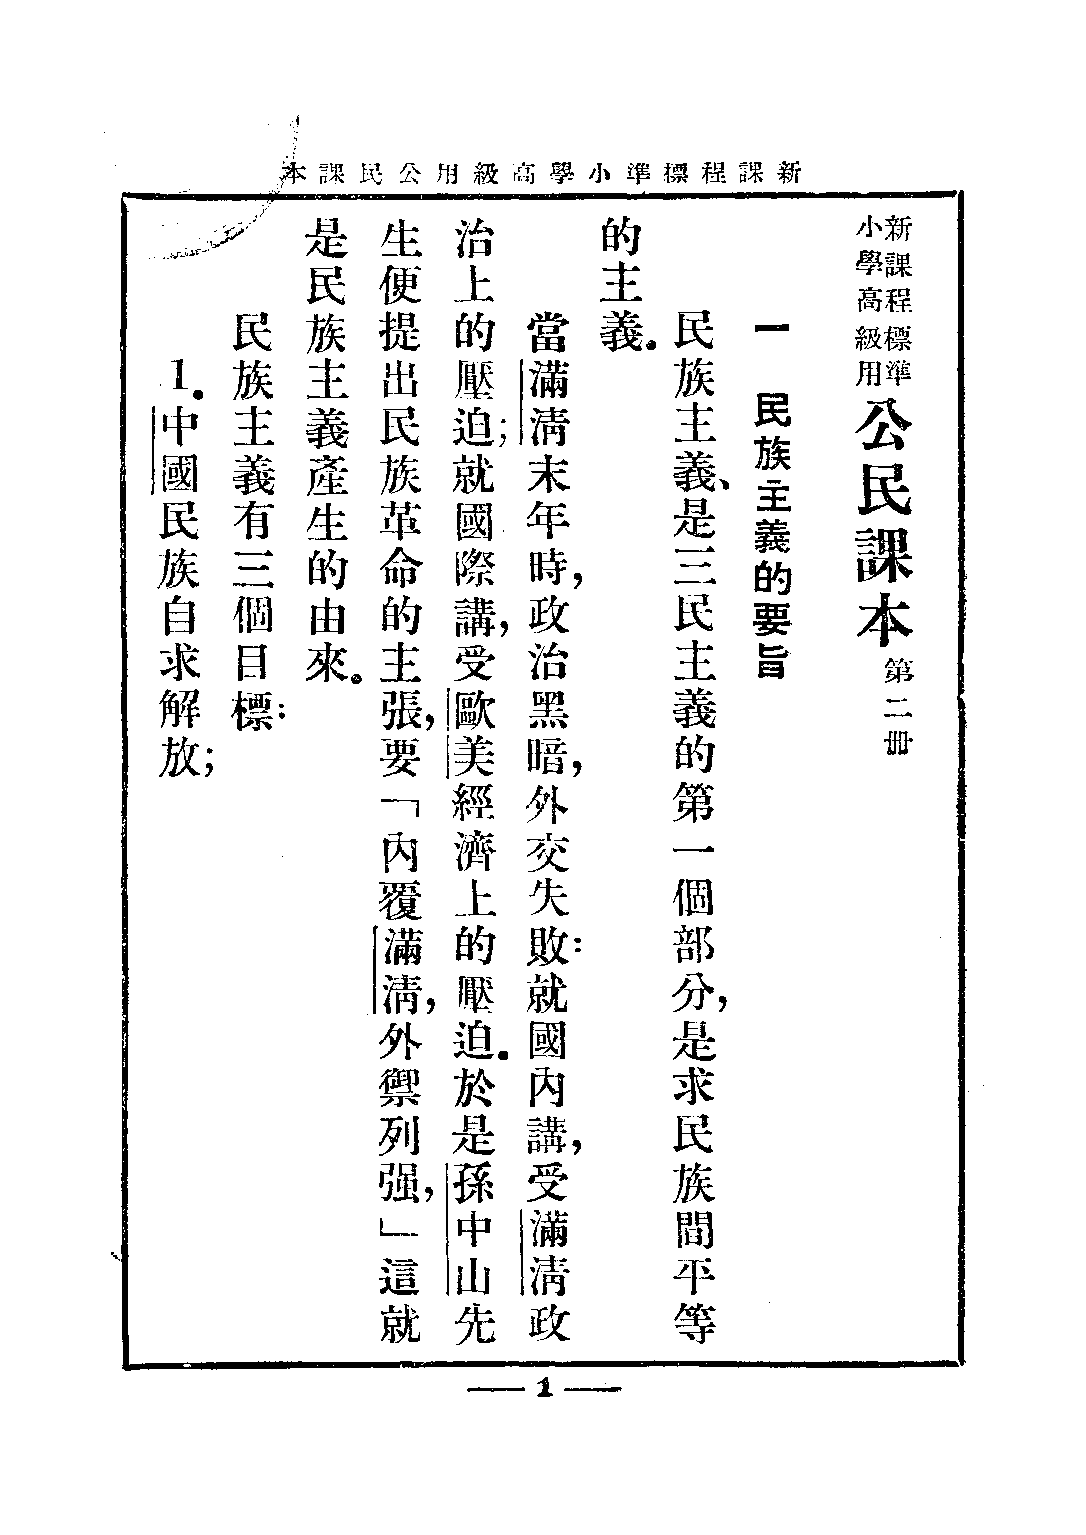 新課程標準小學高級用公民課本
新課程標準
小學高級用
公民課本 第二册
一 民族主義的要旨
民族主義、是三民主義的第一個部分,是求民族間平等
的主義。
當滿清末年時,政治黑暗,外交失敗:就國內講,受滿清政
治上的壓迫;就國際講,受歐美經濟上的壓迫。於是孫中山先
生便提出民族革命的主張,要「內覆滿清,外禦列强,」這就
是民族主義產生的由來。
民族主義有三個目標:
1.中國民族自求解放;
— 1 —